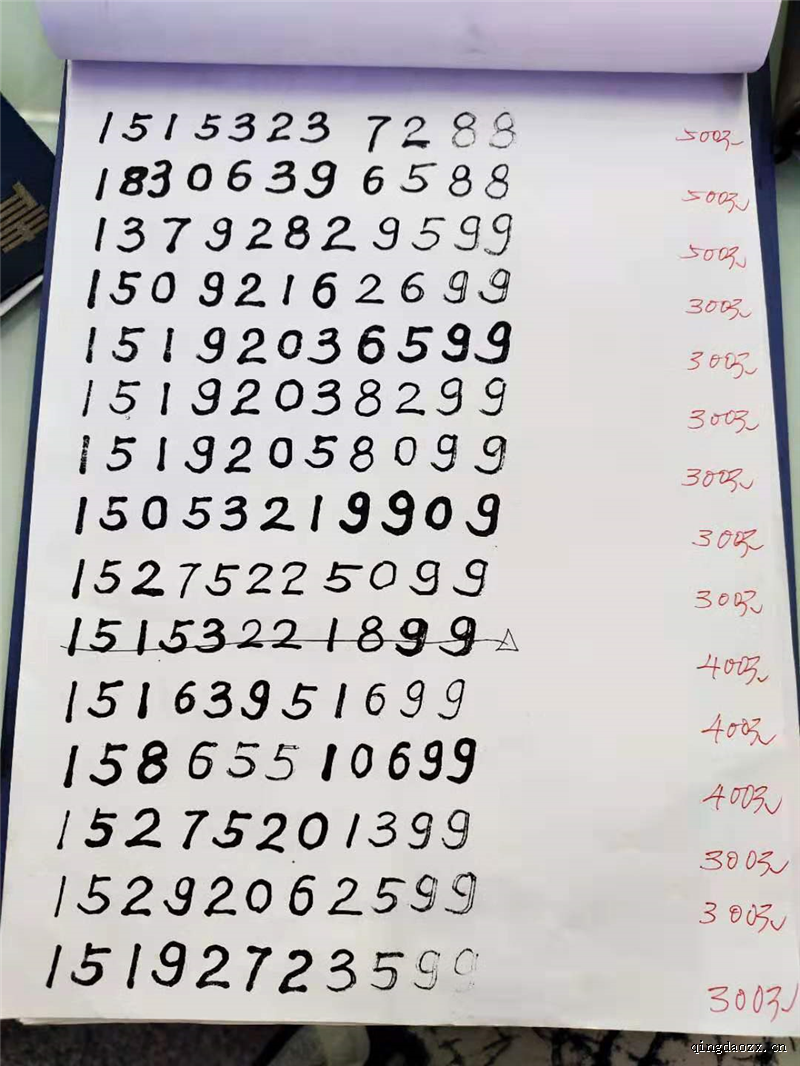 1515323 7288 500元
1830639 6588 500元
13792829599 500元
150 92162699 300元
15192036599 300元
15192038299 300元
15192058099 300元
15053219909 300元
15275225099 300元
15153221899 400元
15163951699 400元
15865510699 400元
15275201399 300元
15292062599 300元
15192723599 300元
qingdaozx.cn